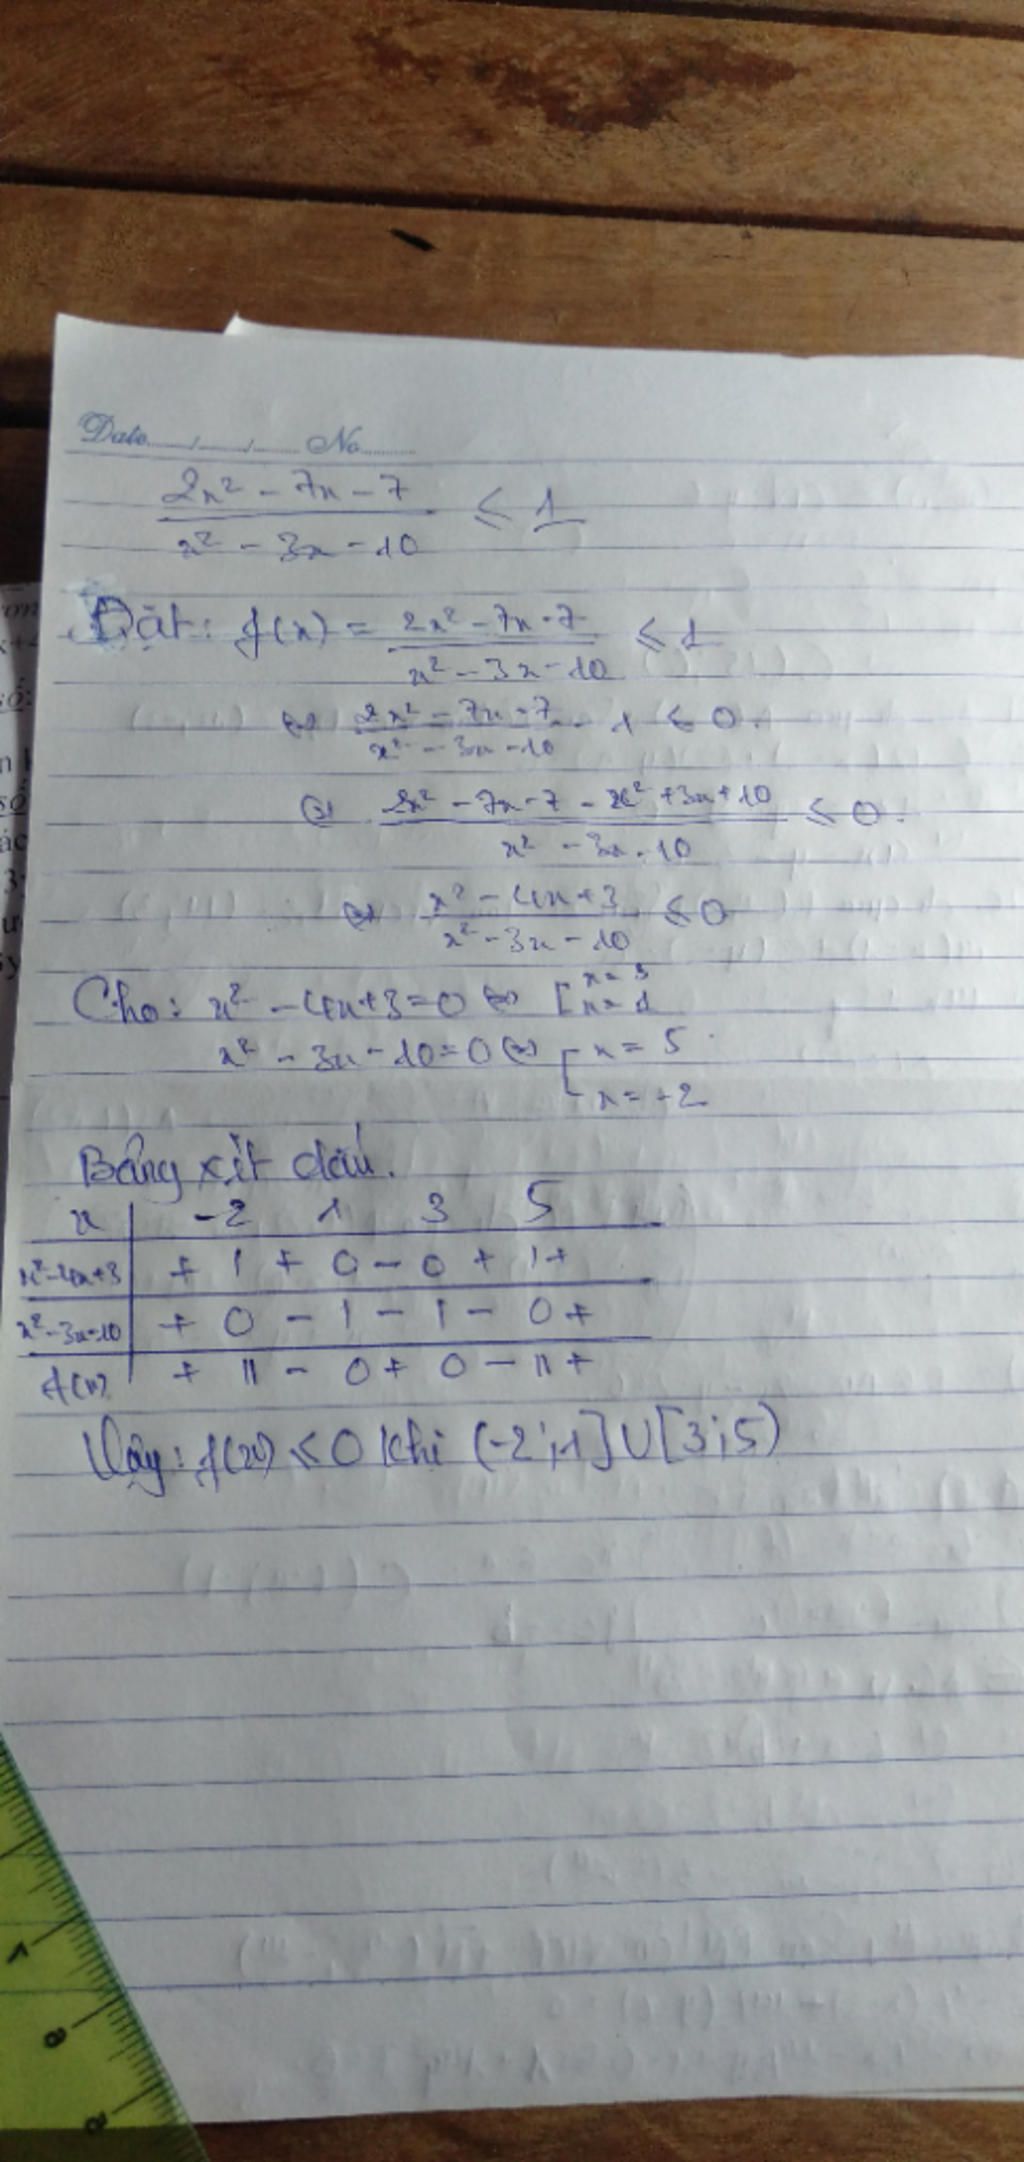 Date...../...../..... No..........
2x² - 7x - 7 / x² - 3x - 10 ≤ 1
Đặt: f(x) = 2x² - 7x - 7 / x² - 3x - 10 ≤ 1
⇔ 2x² - 7x - 7 / x² - 3x - 10 - 1 ≤ 0.
⇔ 2x² - 7x - 7 - x² + 3x + 10 / x² - 3x - 10 ≤ 0.
⇔ x² - 4x + 3 / x² - 3x - 10 ≤ 0
Cho: x² - 4x + 3 = 0 ⇔ [ x = 3
x = 1
x² - 3x - 10 = 0 ⇔ [ x = 5
x = -2
Bảng xét dấu.
x | -2 1 3 5
x² - 4x + 3 | + | + 0 - 0 + | +
x² - 3x - 10 | + 0 - | - | - 0 +
f(x) | + || - 0 + 0 - || +
Vậy: f(x) ≤ 0 khi (-2; 1] ∪ [3; 5)